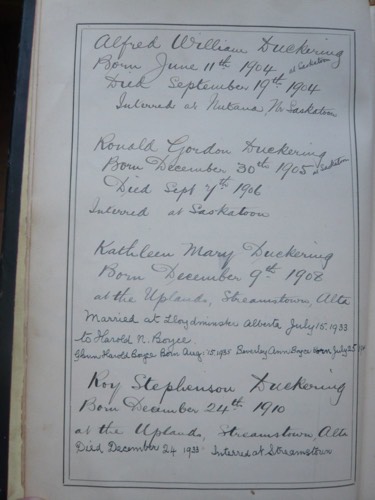 Alfred William Duckering
Born June 11th 1904 at Saskatoon
Died September 19th 1904
Interred at Nutana Nr Saskatoon
Ronald Gordon Duckering
Born December 30th 1905 at Saskatoon
Died Sept 7th 1906
Interred at Saskatoon
Kathleen Mary Duckering
Born December 9th 1908
at the Uplands, Streamstown, Alta
Married at Lloydminster Alberta July 15, 1933
to Harold N. Boyce.
Harold Boyce Born Aug. 15 1935 Beverley Ann Boyce Born July 25
Roy Stephenson Duckering
Born December 24th 1910
at the Uplands, Streamstown, Alta
Died December 24 1933 Interred at Streamstown